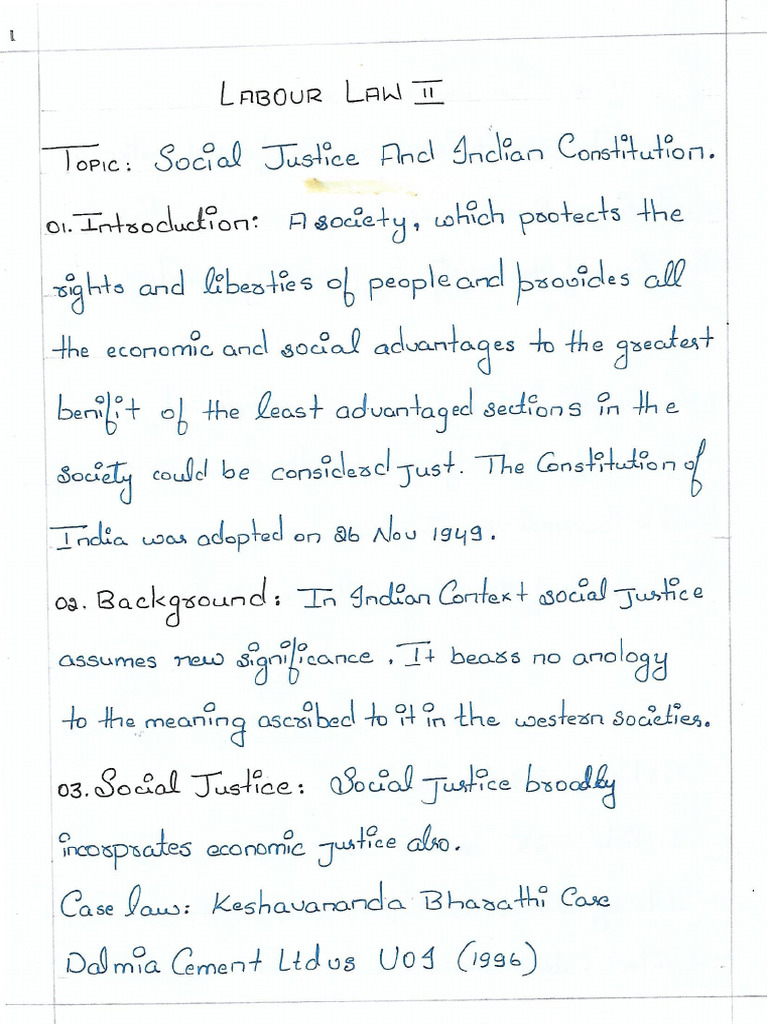 1
LABOUR LAW II
TOPIC: Social Justice And Indian Constitution.
01. Introduction: A society, which protects the
rights and liberties of people and provides all
the economic and social advantages to the greatest
benifit of the least advantaged sections in the
society could be considerd just. The Constitution of
India was adopted on 26 Nov 1949.
02. Background: In Indian Context social justice
assumes new significance. It bears no anology
to the meaning ascribed to it in the western societies.
03. Social Justice: Social justice broadly
incorprates economic justice also.
Case law: Keshavananda Bharathi Case
Dalmia Cement Ltd vs UOI (1996)